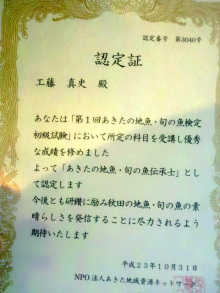 認定番号 第3040号
認定証
工藤 真史 殿
あなたは「第1回あきたの地魚・旬の魚検定
初級試験」において所定の科目を受講し優秀
な成績を修めました
よって「あきたの地魚・旬の魚伝承士」とし
て認定します
今後とも研鑽に励み秋田の地魚・旬の魚の素
晴らしさを発信することに尽力されるよう
期待いたします
平成23年10月31日
NPO法人あきた地域資源ネットワーク